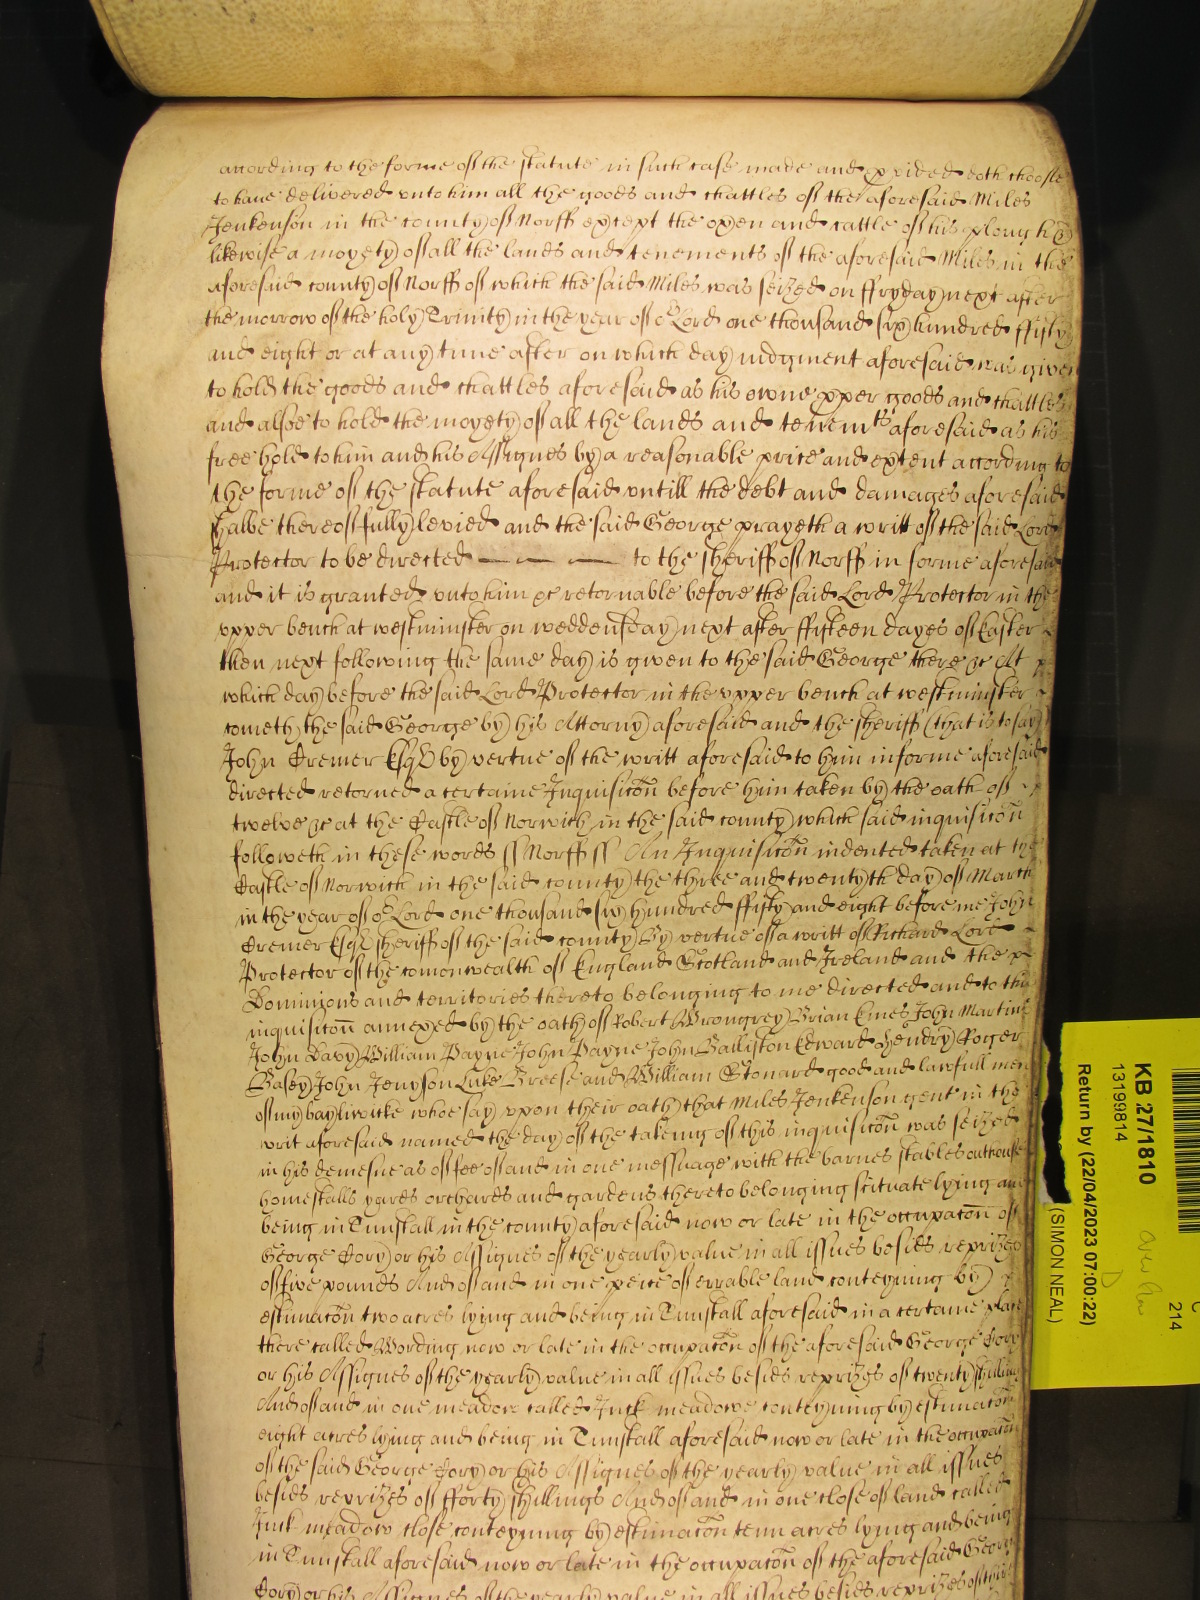 according to the forme of the statute in such case made and pvided doth choose
to have delivered vnto him all the goods and chattles of the aforesaid Miles
Jenkenson in the county of Norff except the oxen and cattle of his plough
likewise a moyety of all the lands and tenements of the aforesaid Miles in the
aforesaid county of Norff of which the said Miles was seized on ffryday next after
the morrow of the holy Trinity in the year of or Lord one thousand six hundred ffifty
and eight or at any time after on which day iudgment aforesaid was given
to hold the goods and chattles aforesaid as his owne pper goods and chattles
and alsoe to hold the moyety of all the lands and tenemts aforesaid as his
free hold to him and his Assignes by a reasonable price and extent according to
the forme of the statute aforesaid vntill the debt and damages aforesaid
shalbe thereof fully levied and the said George prayeth a writt of the said Lord
Protector to be directed — — — to the sheriff of Norff in forme aforesaid
and it is granted vnto him &c retornable before the said Lord Protector in the
vpper bench at westminster on weddensday next after ffifteen dayes of Easter
then next following the same day is given to the said George there &c At
which day before the said Lord Protector in the vpper bench at westminster
cometh the said George by his Attorny aforesaid and the sheriff (that is to say)
John Cremer Esqr by vertue of the writt aforesaid to him in forme aforesaid
directed retorned a certaine Inquisicon before him taken by the oath of
twelve &c at the Castle of Norwich in the said county which said inquisicon
followeth in these words ss Norff ss An Inquisicon indented taken at the
Castle of Norwich in the said county the three and twentyth day of March
in the year of or Lord one thousand six hundred ffifty and eight before me John
Cremer Esqr sheriff of the said county By vertue of a writt of Richard Lord
Protector of the comonwealth of England Scotland and Ireland and the
Dominions and territories thereto belonging to me directed and to this
inquisicon annexed by the oath of Robert Wrongrey Brian Eines John Martin
John Davy William Payne John Payne John Balliston Edward Hendry Roger
Basey John Jenyson Luke Breese and William Stonard good and lawfull men
of my bayliwicke whoe say vpon their oath that Miles Jenkenson gent in the
writ aforesaid named the day of the takeing of this inquisicon was seized
in his demesne as of fee of and in one messuage with the barnes stables outhouses
homestalls yards orchards and gardens thereto belonging scituate lying and
being in Tunstall in the county aforesaid now or late in the occupacon of
George Cory or his Assignes of the yearly value in all issues besids reprizes
of five pounds And of and in one peice of errable land conteyning by
estimacon two acres lying and being in Tunstall aforesaid in a certaine place
there called Wording now or late in the occupacon of the aforesaid George Cory
or his Assignes of the yearly value in all issues besids reprizes of twenty shillings
And of and in one meadow called Juck meadowe conteyning by estimacon
eight acres lying and being in Tunstall aforesaid now or late in the occupacon
of the said George Cory or his Assignes of the yearly value in all issues
besids reprizes of fforty shillings And of and in one close of land called
Juck meadow close conteyning by estimacon tenn acres lying and being
in Tunstall aforesaid now or late in the occupacon of the aforesaid George
Cory or his Assignes of the yearly value in all issues besids reprizes of
KB 27/1810
13199814
Return by (22/04/2023 07:00:22)
(SIMON NEAL)
214